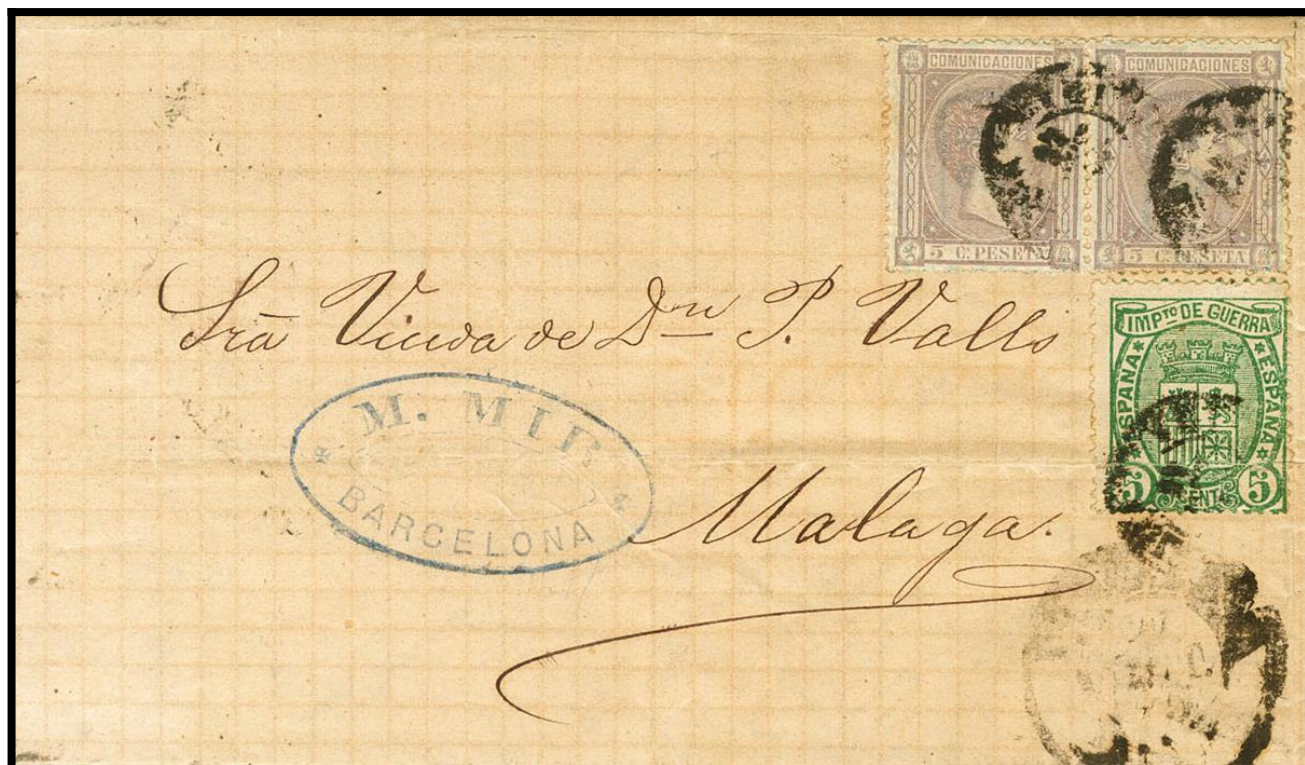 COMUNICACIONES
5 C. PESETA
COMUNICACIONES
5 C. PESETA
Sra Viuda de Dn P. Valls
IMPTO DE GUERRA
ESPAÑA
ESPAÑA
5 CENTS 5
M. MIR
BARCELONA
Malaga.